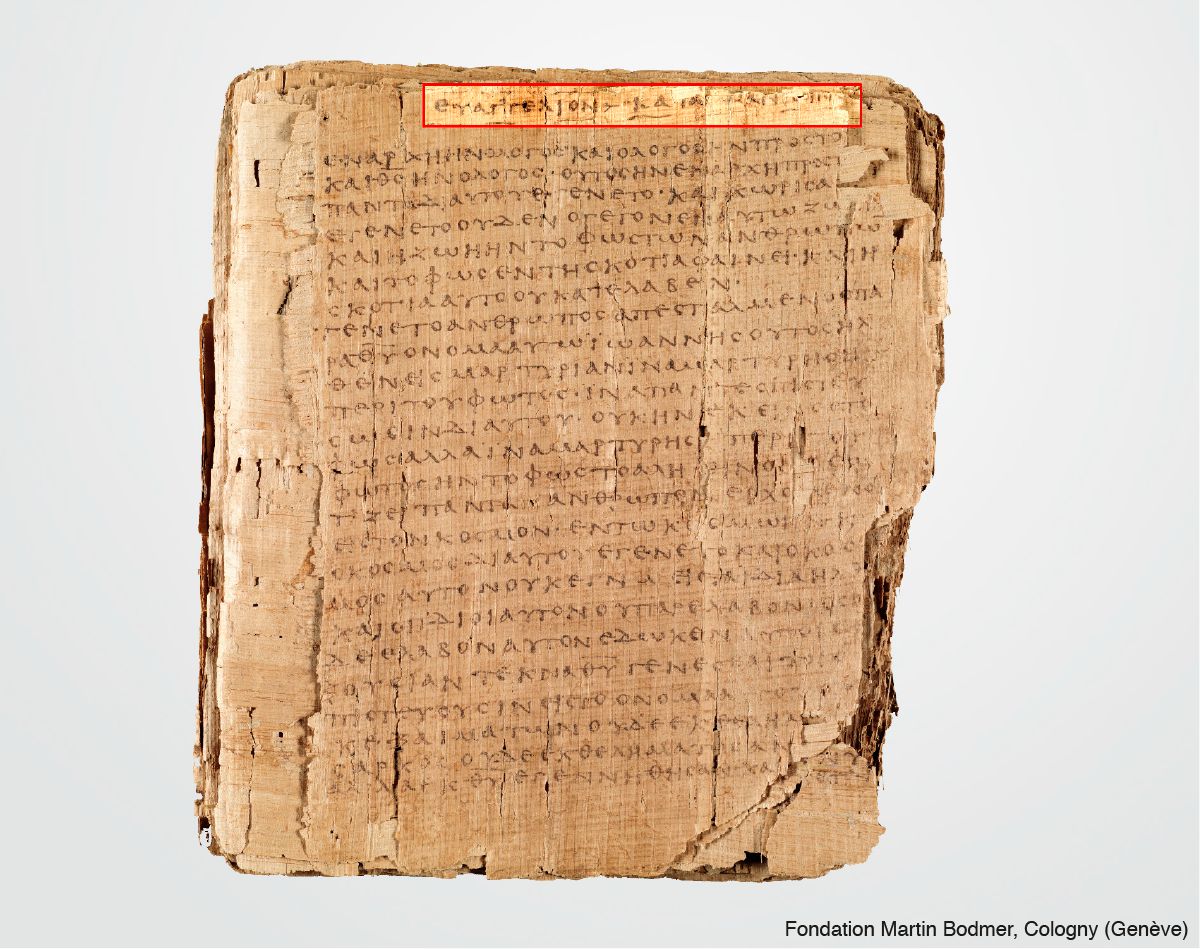 ΕΥΑΓΓΕΛΙΟΝ ΚΑΤΑ
ΕΝΑΡΧΗΗΝΟΛΟΓΟΣΚΑΙΟΛΟΓΟΣΗΝΠΡΟΣΤΟ
ΚΑΙΘΣΗΝΟΛΟΓΟΣ·ΟΥΤΟΣΗΝΕΝΑΡΧΗΠΡΟΣΤ
ΠΑΝΤΑΔΙΑΥΤΟΥΕΓΕΝΕΤΟ·ΚΑΙΧΩΡΙΣΑ
ΕΓΕΝΕΤΟΟΥΔΕΝΟΓΕΓΟΝΕΝΑΥΤΩΖΩ
ΚΑΙΗΖΩΗΗΝΤΟΦΩΣΤΩΝΑΝΘΡΩΠΩ
ΚΑΙΤΟΦΩΣΕΝΤΗΣΚΟΤΙΑΦΑΙΝΕΙ·ΚΑΙΗ
ΣΚΟΤΙΑΑΥΤΟΟΥΚΑΤΕΛΑΒΕΝ·
ΓΕΝΕΤΟΑΝΘΡΩΠΟΣΑΠΕΣΤΑΛΜΕΝΟΣΠΑ
ΡΑΘΥΟΝΟΜΑΑΥΤΩΙΩΑΝΝΗΣΟΥΤΟΣΗΛ
ΘΕΝΕΙΣΜΑΡΤΥΡΙΑΝΙΝΑΜΑΡΤΥΡΗΣΗ
ΠΕΡΙΤΟΥΦΩΤΟΣ·ΙΝΑΠΑΝΤΕΣΠΙΣΤΕΥ
ΣΩΣΙΝΔΙΑΥΤΟΥ ΟΥΚΗΝΕΚΕΙΝΟΣΤΟ
ΦΩΣΑΛΛΑΙΝΑΜΑΡΤΥΡΗΣΗΠΕΡΙΤΟΥ
ΦΩΤΟΣΗΝΤΟΦΩΣΤΟΑΛΗΘΙΝΟΝ
ΤΙΖΕΙΠΑΝΤΑ ΑΝΘΡΩΠΟΝ ΕΡΧΟΜΕΝΟ
ΕΙΣΤΟΝΚΟΣΜΟΝ·ΕΝΤΩΚΟΣΜΩΗΝ
ΟΚΟΣΜΟΣΔΙΑΥΤΟΥΕΓΕΝΕΤΟΚΑΙΟΚΟΣ
ΜΟΣΑΥΤΟΝΟΥΚΕΓΝΩΕΙΣΤΑΙΔΙΑΗΛ
ΚΑΙΟΙΙΔΙΟΙΑΥΤΟΝΟΥΠΑΡΕΛΑΒΟΝ
ΔΕΕΛΑΒΟΝΑΥΤΟΝΕΔΩΚΕΝΑΥΤΟΙΣ
ΣΟΥΣΙΑΝΤΕΚΝΑΘΥΓΕΝΕΣΘΑΙΤΟΙΣ
ΠΙΣΤΕΥΟΥΣΙΝΕΙΣΤΟΟΝΟΜΑ
ΑΙΜΑΤΩΝΟΥΔΕΕΚ
ΣΑΡΚΟΣΟΥΔΕΕΚΘΕΛΗΜΑΤΟΣΑΝ
ΕΚΘΥΕΓΕΝΝΗΘΗΣΑΝ
Fondation Martin Bodmer, Cologny (Genève)